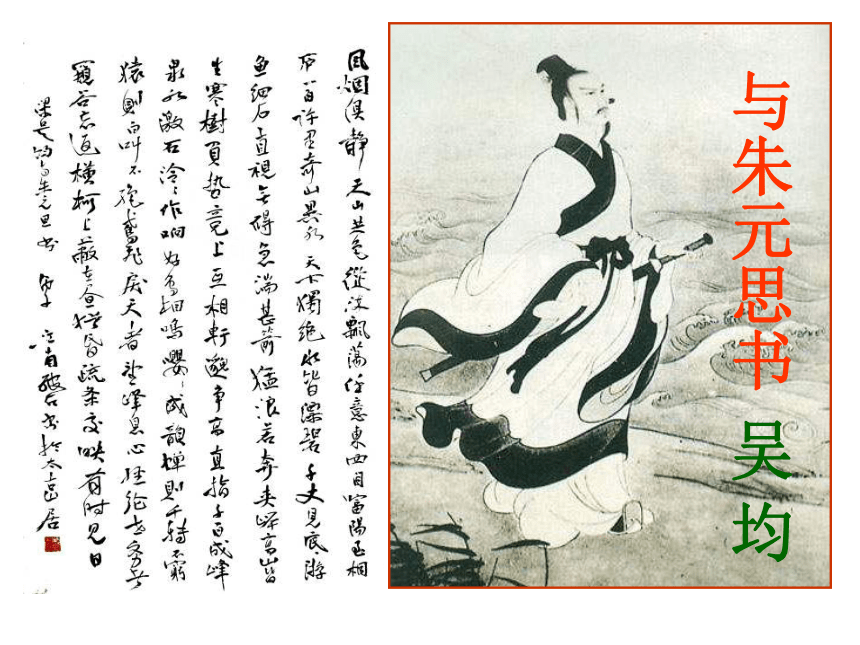 与朱元思书 吴均
風烟俱静天山共色從流飄蕩任意東西自富陽至桐
庐一百许里奇山異水天下獨绝水皆缥碧千丈見底游
鱼细石直視無碍急湍甚箭猛浪若奔夹岸高山皆
生寒樹負势竞上互相軒邈争高直指千百成峰
泉水激石泠泠作响好鸟相鳴嘤嘤成韻蝉則千转不窮
猿則百叫不绝鸢飛戾天者望峰息心经纶世务者
窥谷忘返横柯上蔽在昼猶昏疏条交映有时見日
梁吴均与朱元思书 書於太居